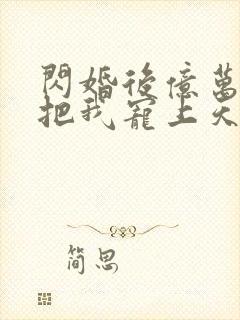 閃婚後億萬
把我寵上天
简思